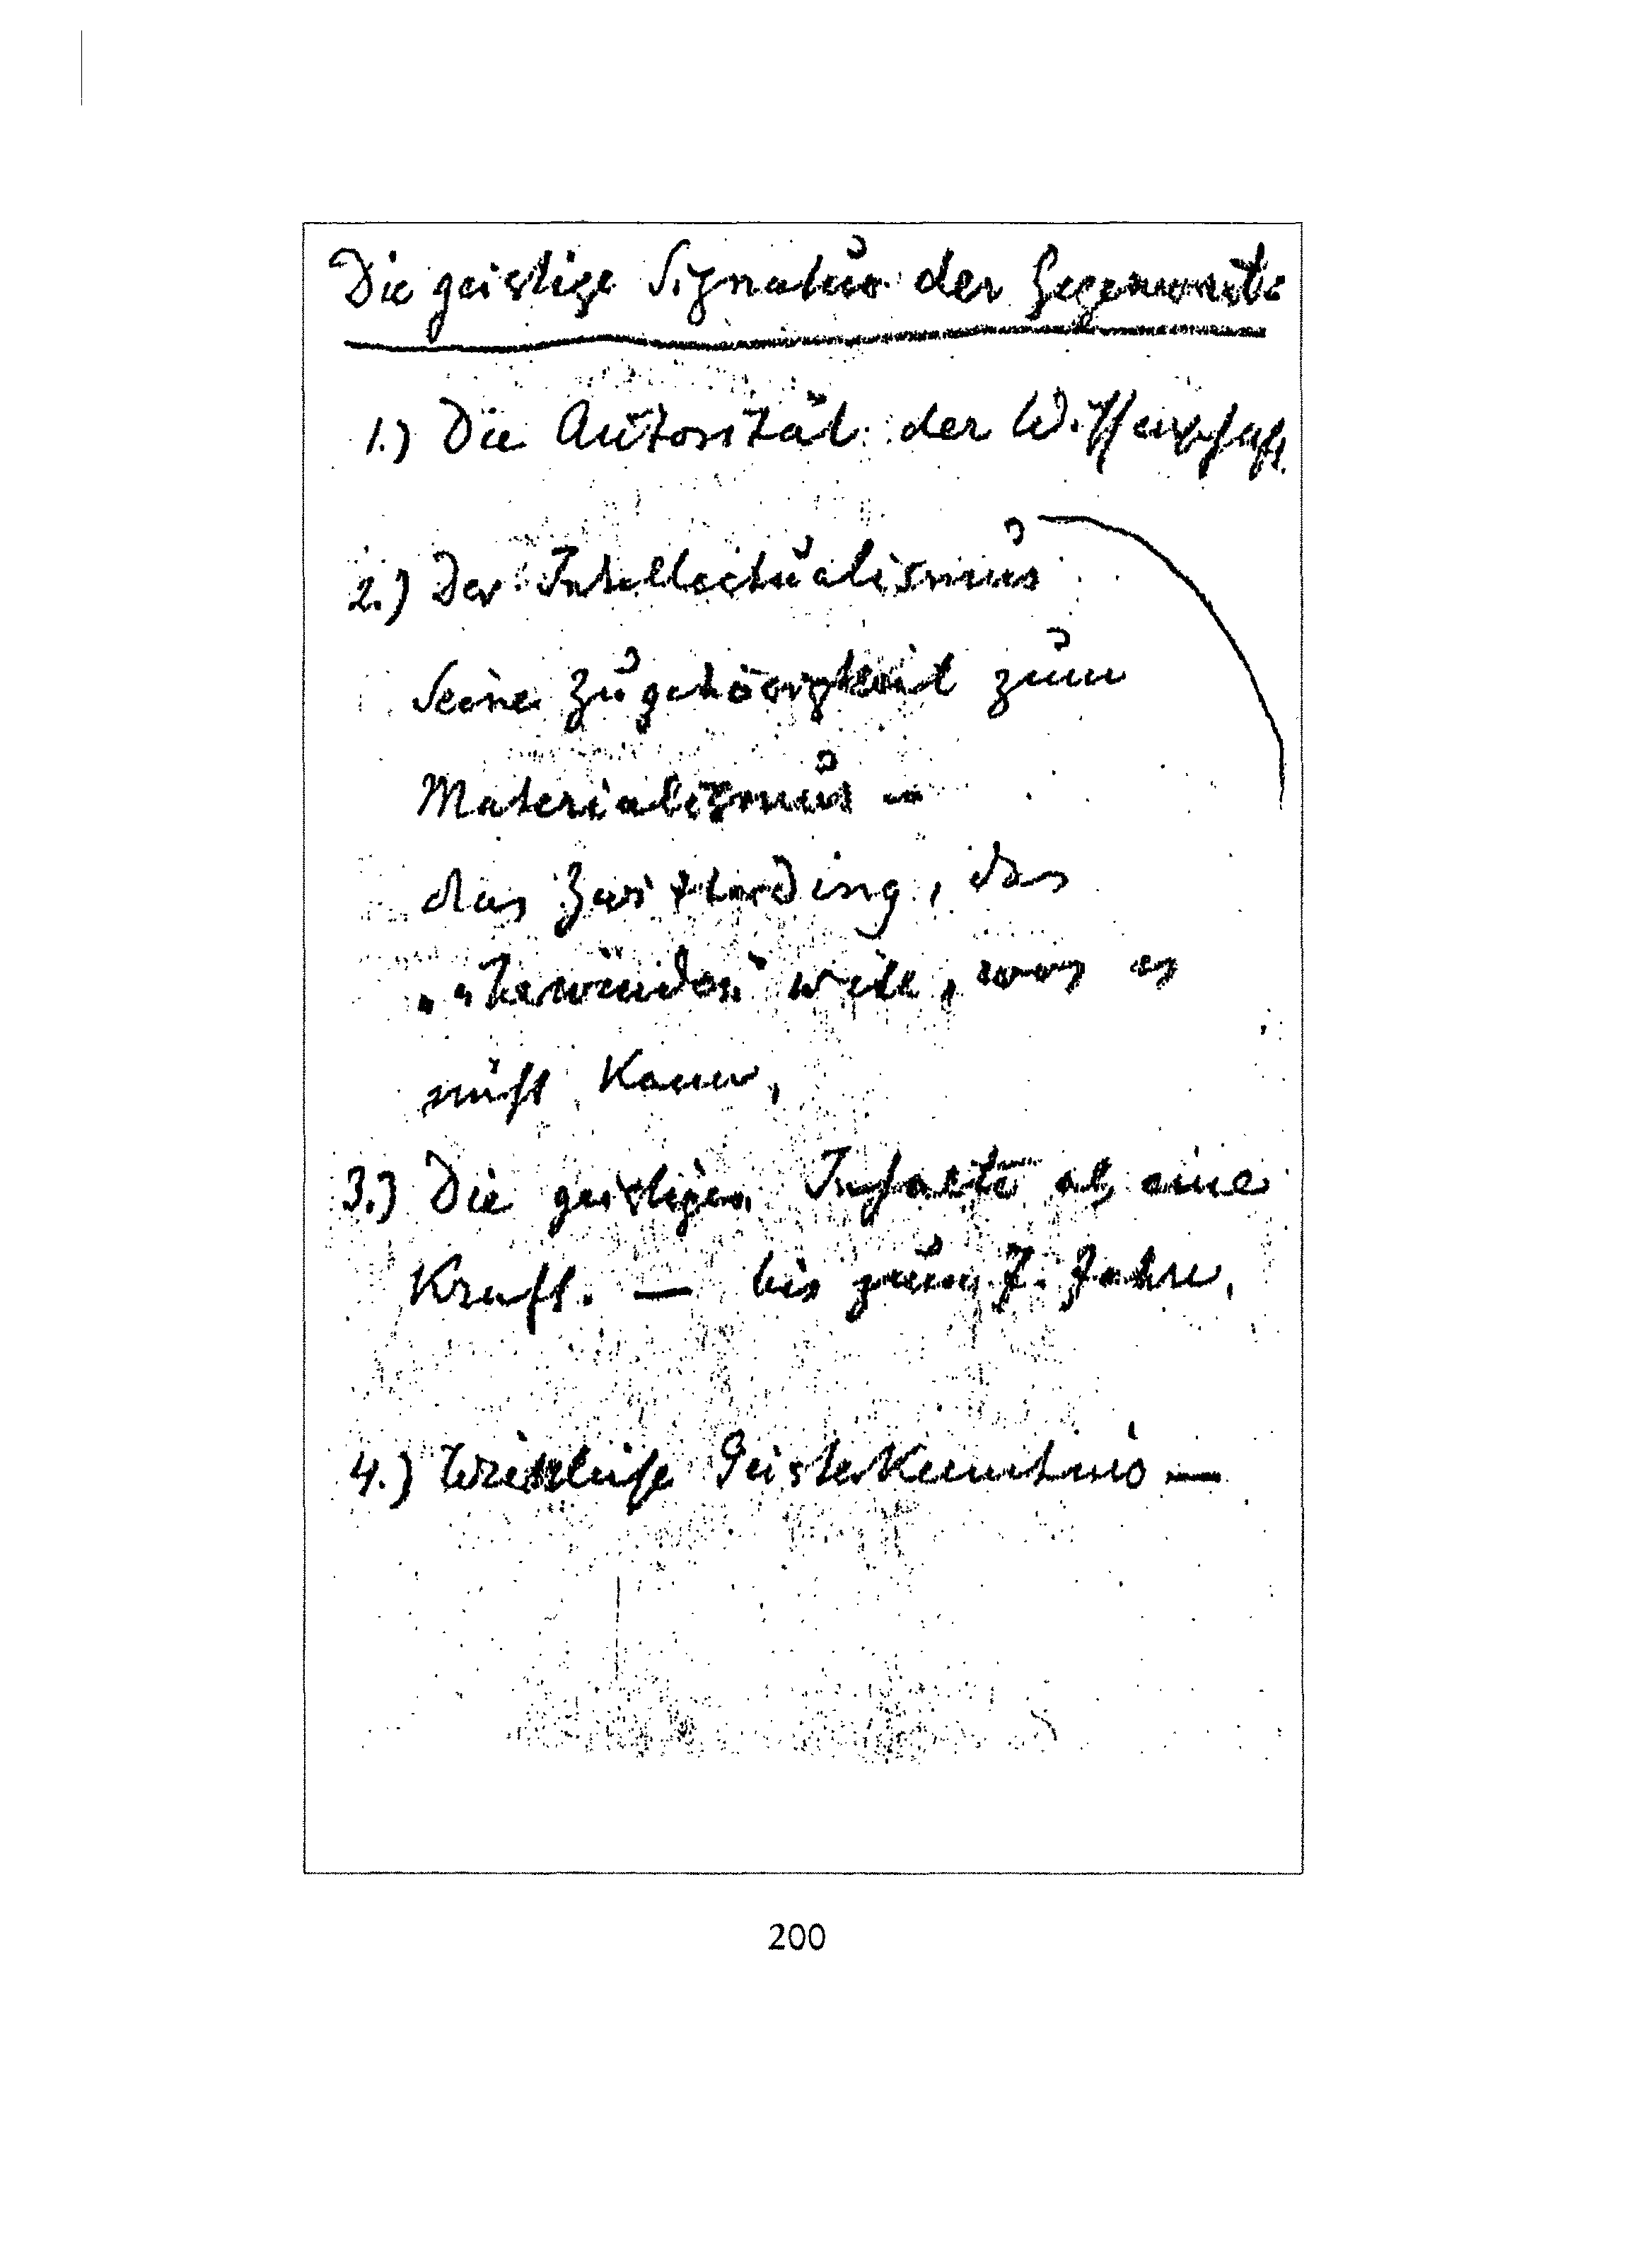 Die geistige Signatur der Gegenwart:
1.) Die Autorität der Wissenschaft.
2.) Der Intellectualismus
seine Zugehöorigkeit zum
Materialismus –
das ding, das
will, was es
nicht kann,
3.) Die geistigen Inhalte als eine
Kraft. — bis zum 7. Jahre,
4.) Wirkliche Geisterkenntnis —
200